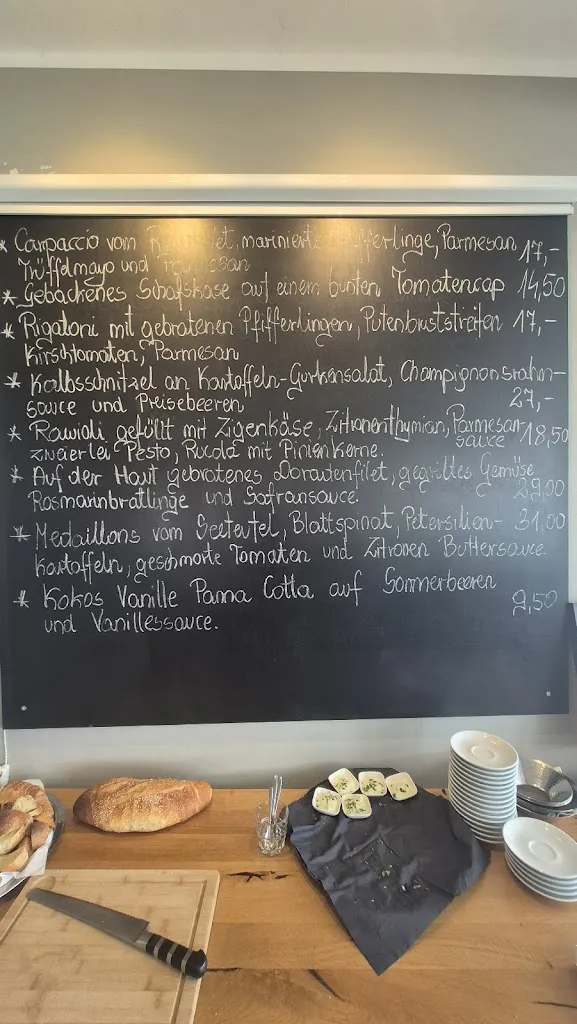 * Carpaccio vom marinierte Parmesan 17,-
Trüffelmayo und
* Gebackenes Schafskäse auf einem bunten Tomatencap 14,50
* Rigatoni mit gebratenen Pfifferlingen, Putenbuststreifen 17,-
Kirschtomaten, Parmesan
* Kalbsschnitzel an Kartoffeln-Gurkensalat, Champignonsrahm-
sauce und Preisebeeren 27,-
* Rawioli gefüllt mit Zigenkäse, Zitronenthymian, Parmesan-
sauce 18,50
zweierlei Pesto, Rucola mit Pinienkerne.
* Auf der Haut gebratenes Doradenfilet, gegrilltes Gemüse
Rosmarinbratlinge und Safransauce. 29,00
* Medaillons vom Seeteufel, Blattspinat, Petersilien- 31,00
kartoffeln, geschmorte Tomaten und Zitronen Buttersauce
* Kokos Vanille Panna Cotta auf Sommerbeeren
und Vanillessauce. 9,50